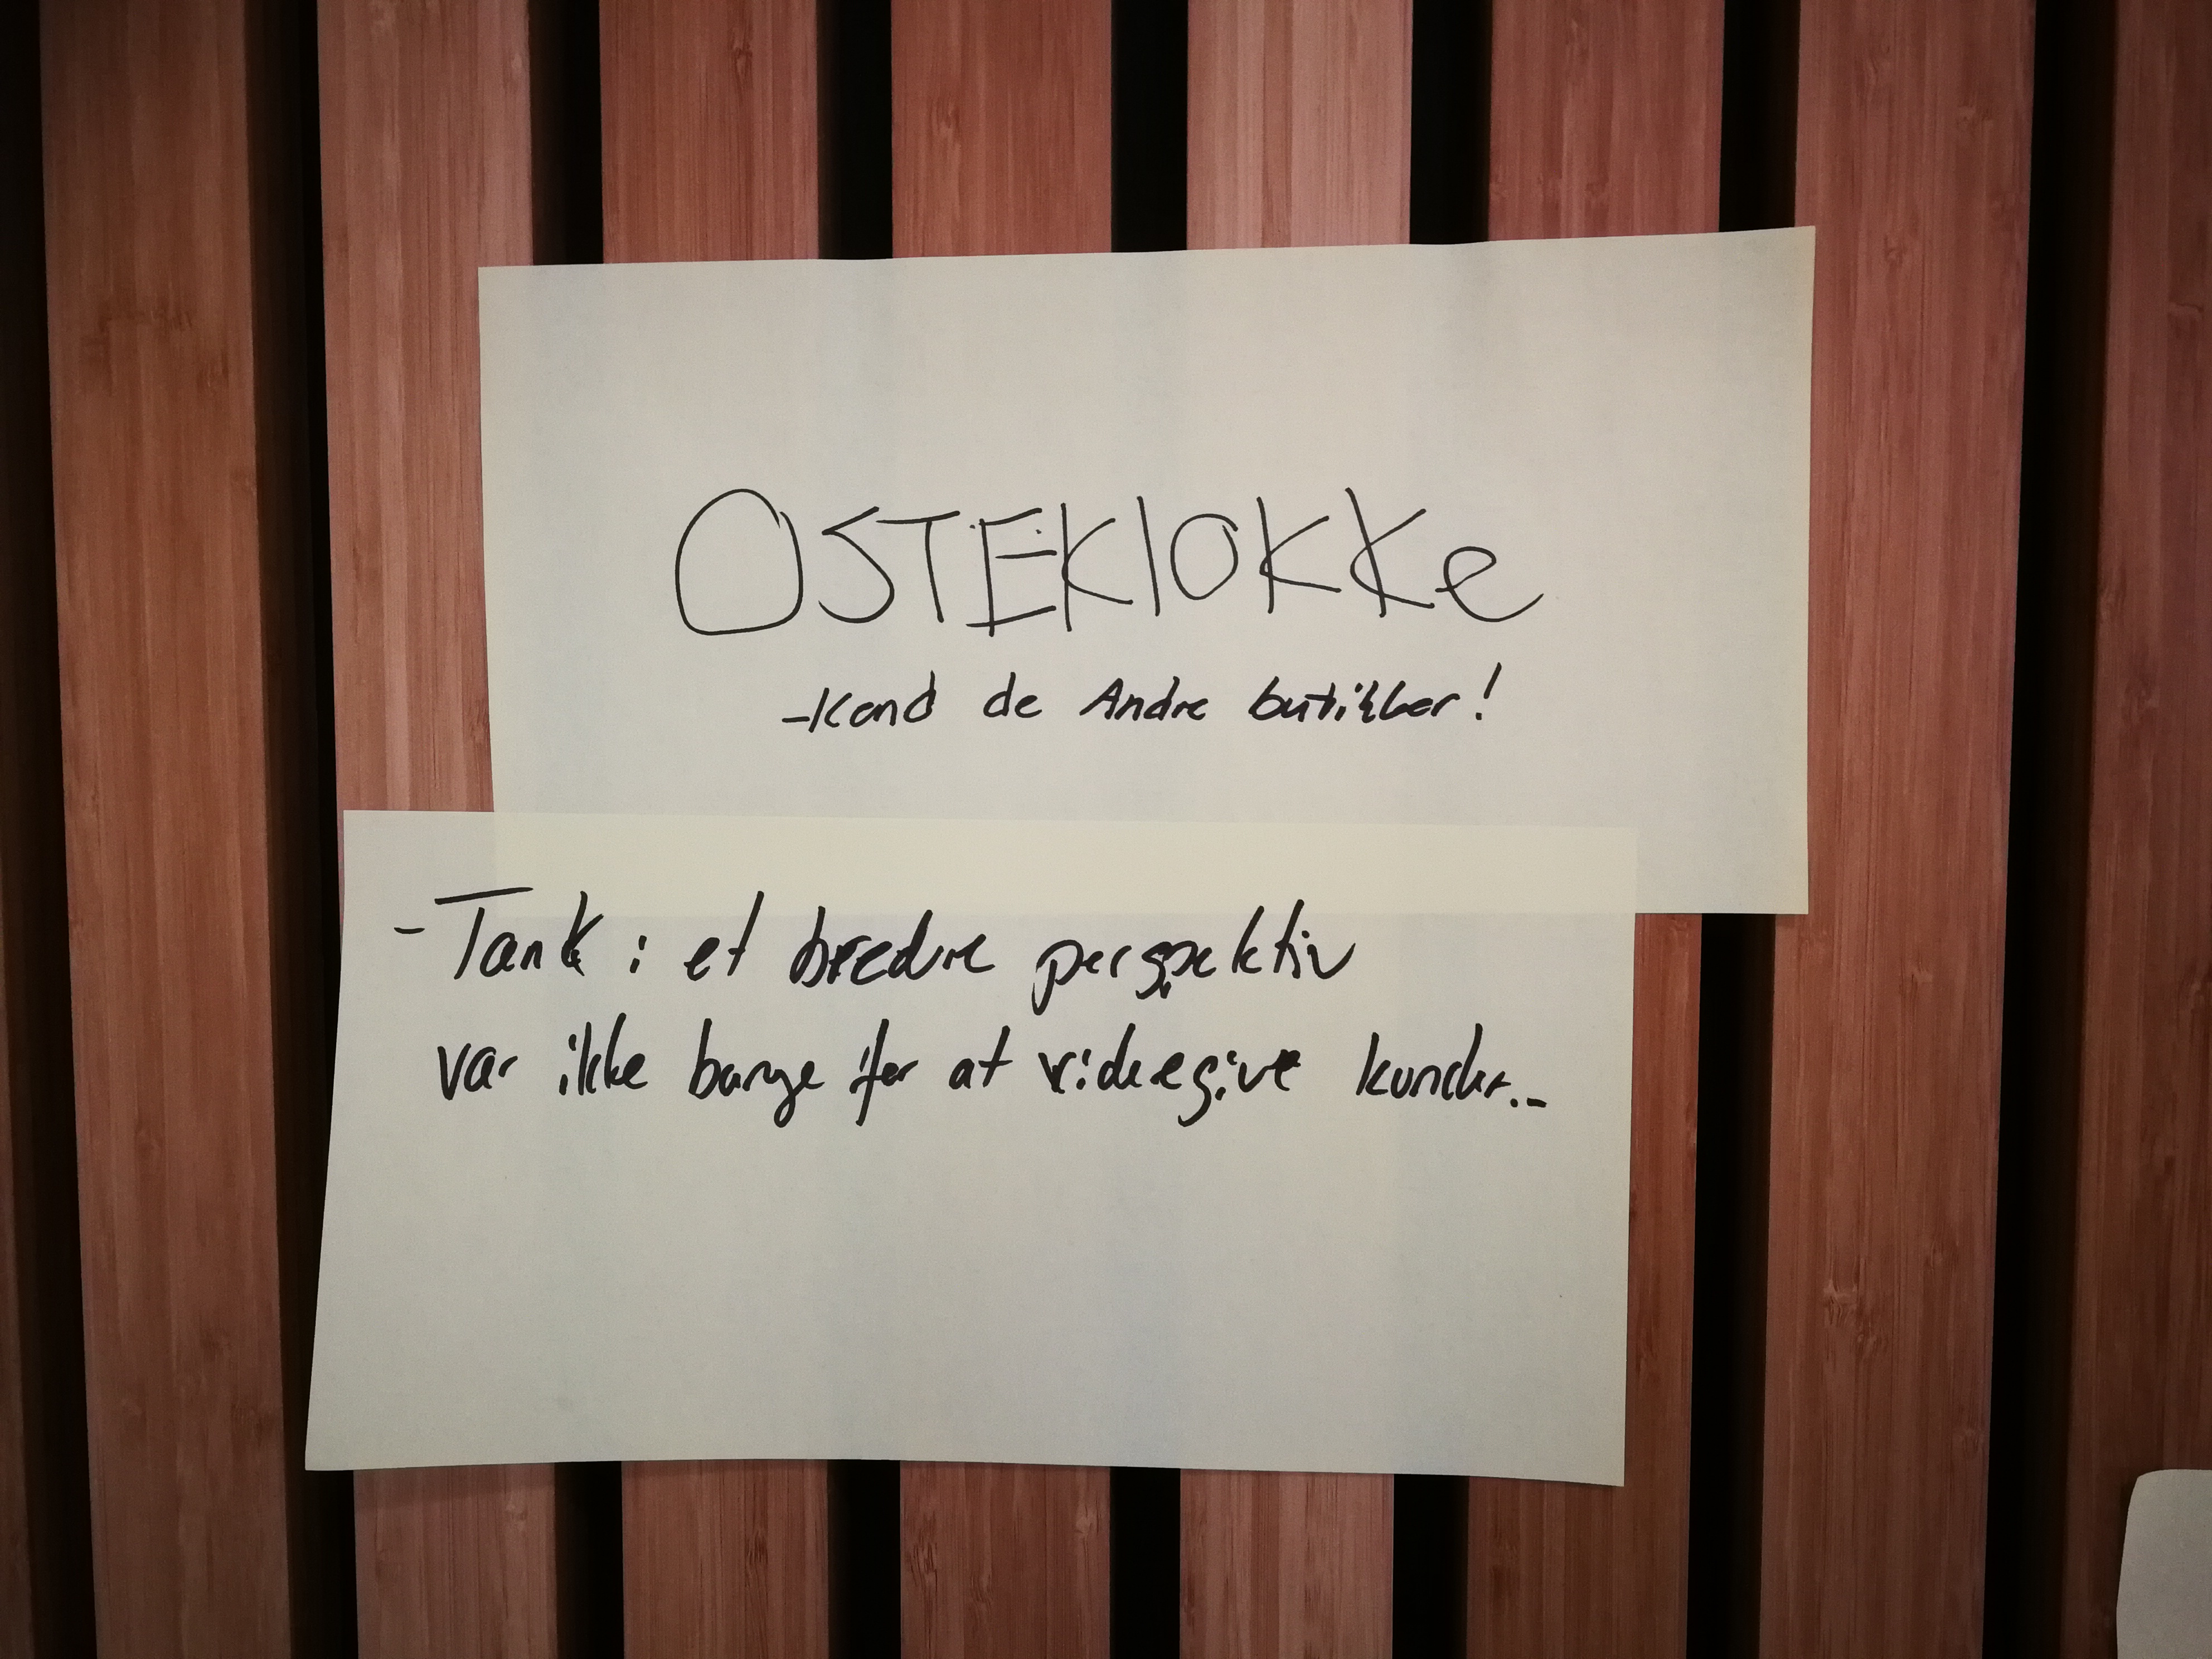 OSTEKlOKKe
-Kend de Andre butikker!
- Tænk i et bredere perspektiv
Vær ikke bange for at videregive kunder..-